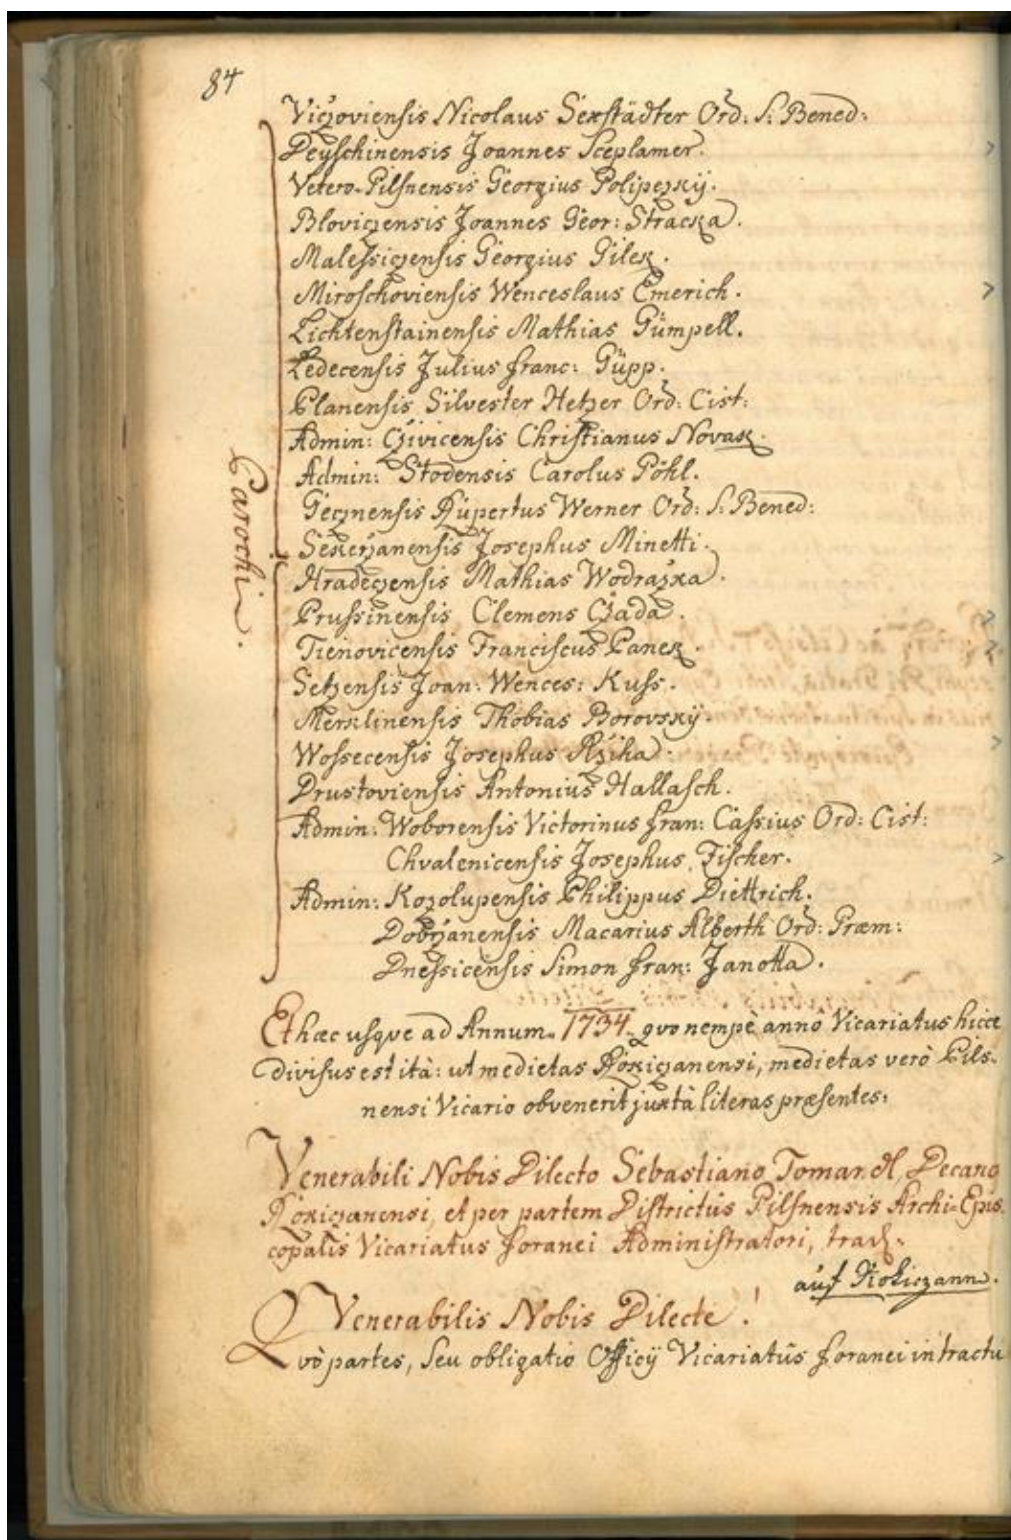 84
Viczoviensis Nicolaus Sexstädter Ord: S: Bened:
Deyschinensis Joannes Sceplamer.
Vetero-Pilsnensis Georgius Polipezkÿ.
Bloviczensis Joannes Geor: Stracka.
Malessiczensis Georgius Gilek.
Miroschoviensis Wenceslaus Emerich.
Lichtenstainensis Mathias Gümpell.
Ledecensis Julius Franc: Güpp.
Planensis Silvester Hetzer Ord: Cist:
Admin: Czivicensis Christianus Novak.
Admin: Stodensis Carolus Pöhl.
Gecznensis Rupertus Werner Ord: S: Bened:
Sekerzanensis Josephus Minetti.
Hradeczensis Mathias Wodrazka.
Prussinensis Clemens Czada.
Tienovicensis Franciscus Panek.
Setzensis Joan: Wences: Kuss.
Merklinensis Thobias Borovskÿ.
Wossecensis Josephus Rziha.
Drustoviensis Antonius Hallasch.
Admin: Woborensis Victorinus Fran: Cassius Ord: Cist:
Chvalenicensis Josephus Fischer.
Admin: Kozolupensis Philippus Diettrich.
Dobrzanensis Macarius Alberth Ord: Præm:
Dnessicensis Simon Fran: Janotta.
Parochi.
Et hæc usque ad Annum 1734 quo nempè annô Vicariatus hicce
divisus est ità: ut medietas Rokiczanensi, medietas verò Pils-
nensi Vicario obvenerit juxtà literas præsentes:
Venerabili Nobis Dilecto Sebastiano Tomar. Decano
Rokiczanensi, et per partem Districtûs Pilsnensis Archi-Epis-
copalis Vicariatus Foranei Administratori,
auf Rokiczann.
Venerabilis Nobis Dilecte!
Quò partes, seu obligatio Officÿ Vicariatûs Foranei in tractu